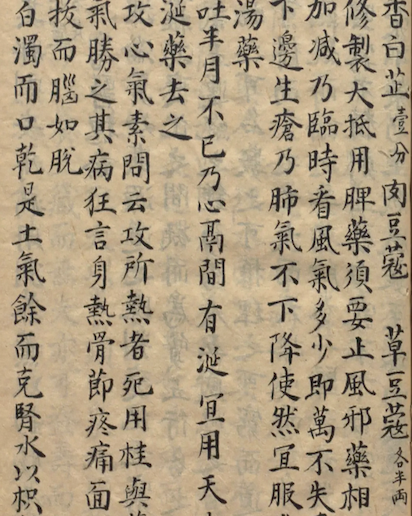 香白芷壹分 肉豆蔻 草豆蔻各半兩
修製大抵用脾藥須要止風邪藥相
加減乃臨時看風氣多少即萬不失
下邊生瘡乃肺氣不下降使然冝服
湯藥
吐半月不已乃心鬲間有涎冝用天
涎藥去之
攻心氣素問云攻所熱者死用桂與
氣勝之其病狂言身熱骨節疼痛面
拔而腦如脫
白濁而口乾是土氣餘而克腎水以枳